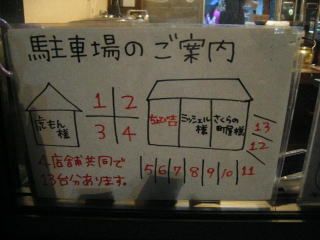 駐車場のご案内
虎もん様
1 2
3 4
ミッシェル様
さくらの町屋様
13
12
4店舗共同で
13台分あります。
5 6 7 8 9 10 11